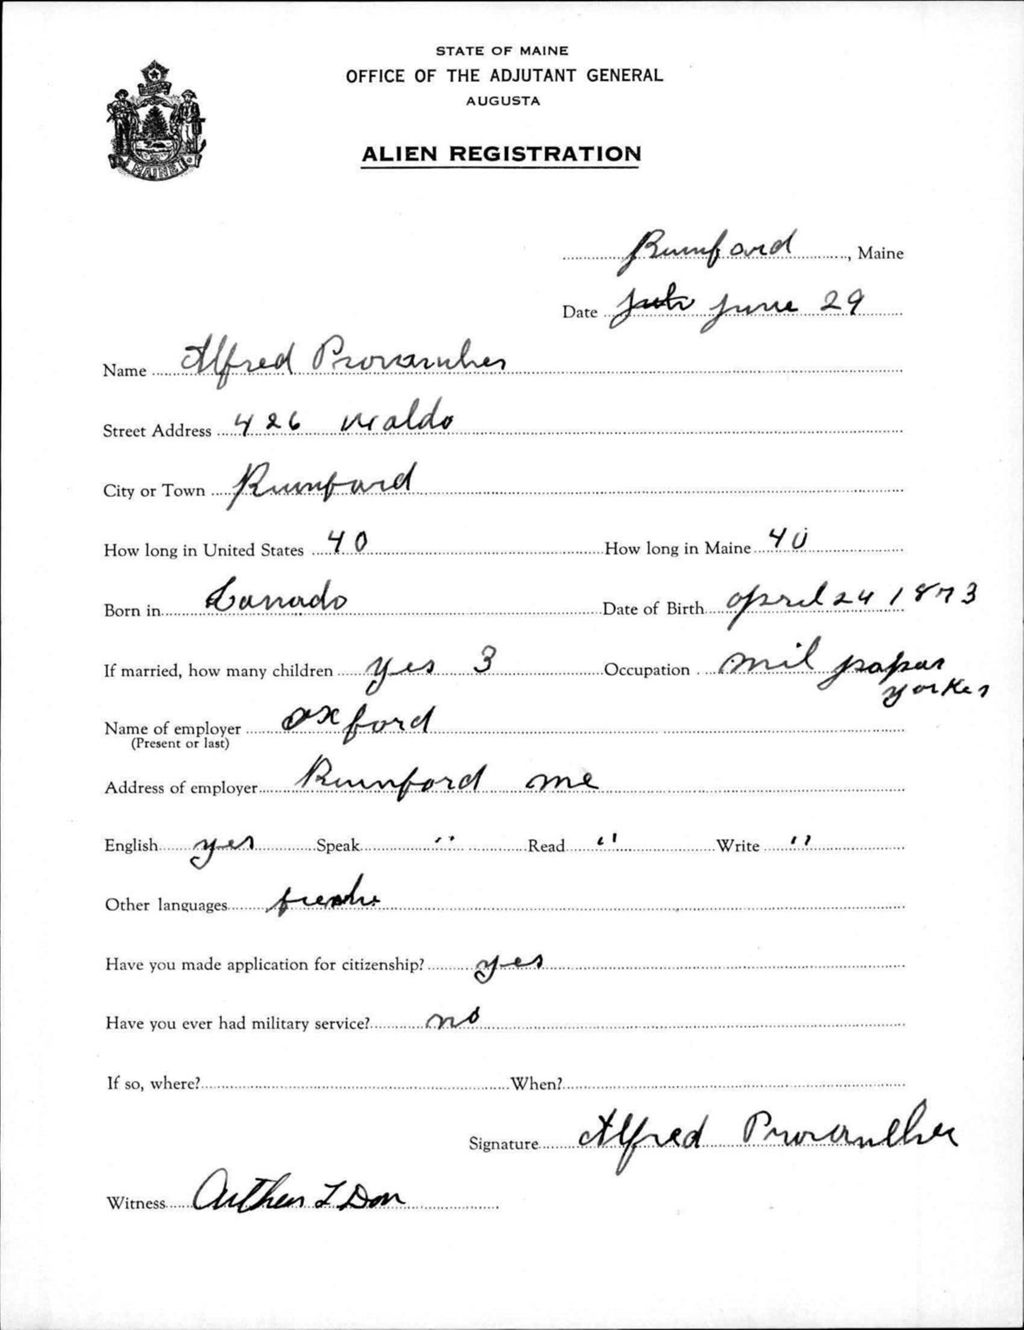 STATE OF MAINE
OFFICE OF THE ADJUTANT GENERAL
AUGUSTA
ALIEN REGISTRATION
MAINE
Rumford, Maine
Date June 29
Name Alfred Provancher
Street Address 426 Waldo
City or Town Rumford
How long in United States 40 How long in Maine 40
Born in Canado Date of Birth April 24 1873
If married, how many children yes 3 Occupation mil papar
yorker
Name of employer oxford
(Present or last)
Address of employer Rumford me
English yes Speak " Read " Write "
Other languages
Have you made application for citizenship? yes
Have you ever had military service? no
If so, where? When?
Signature Alfred Provancher
Witness